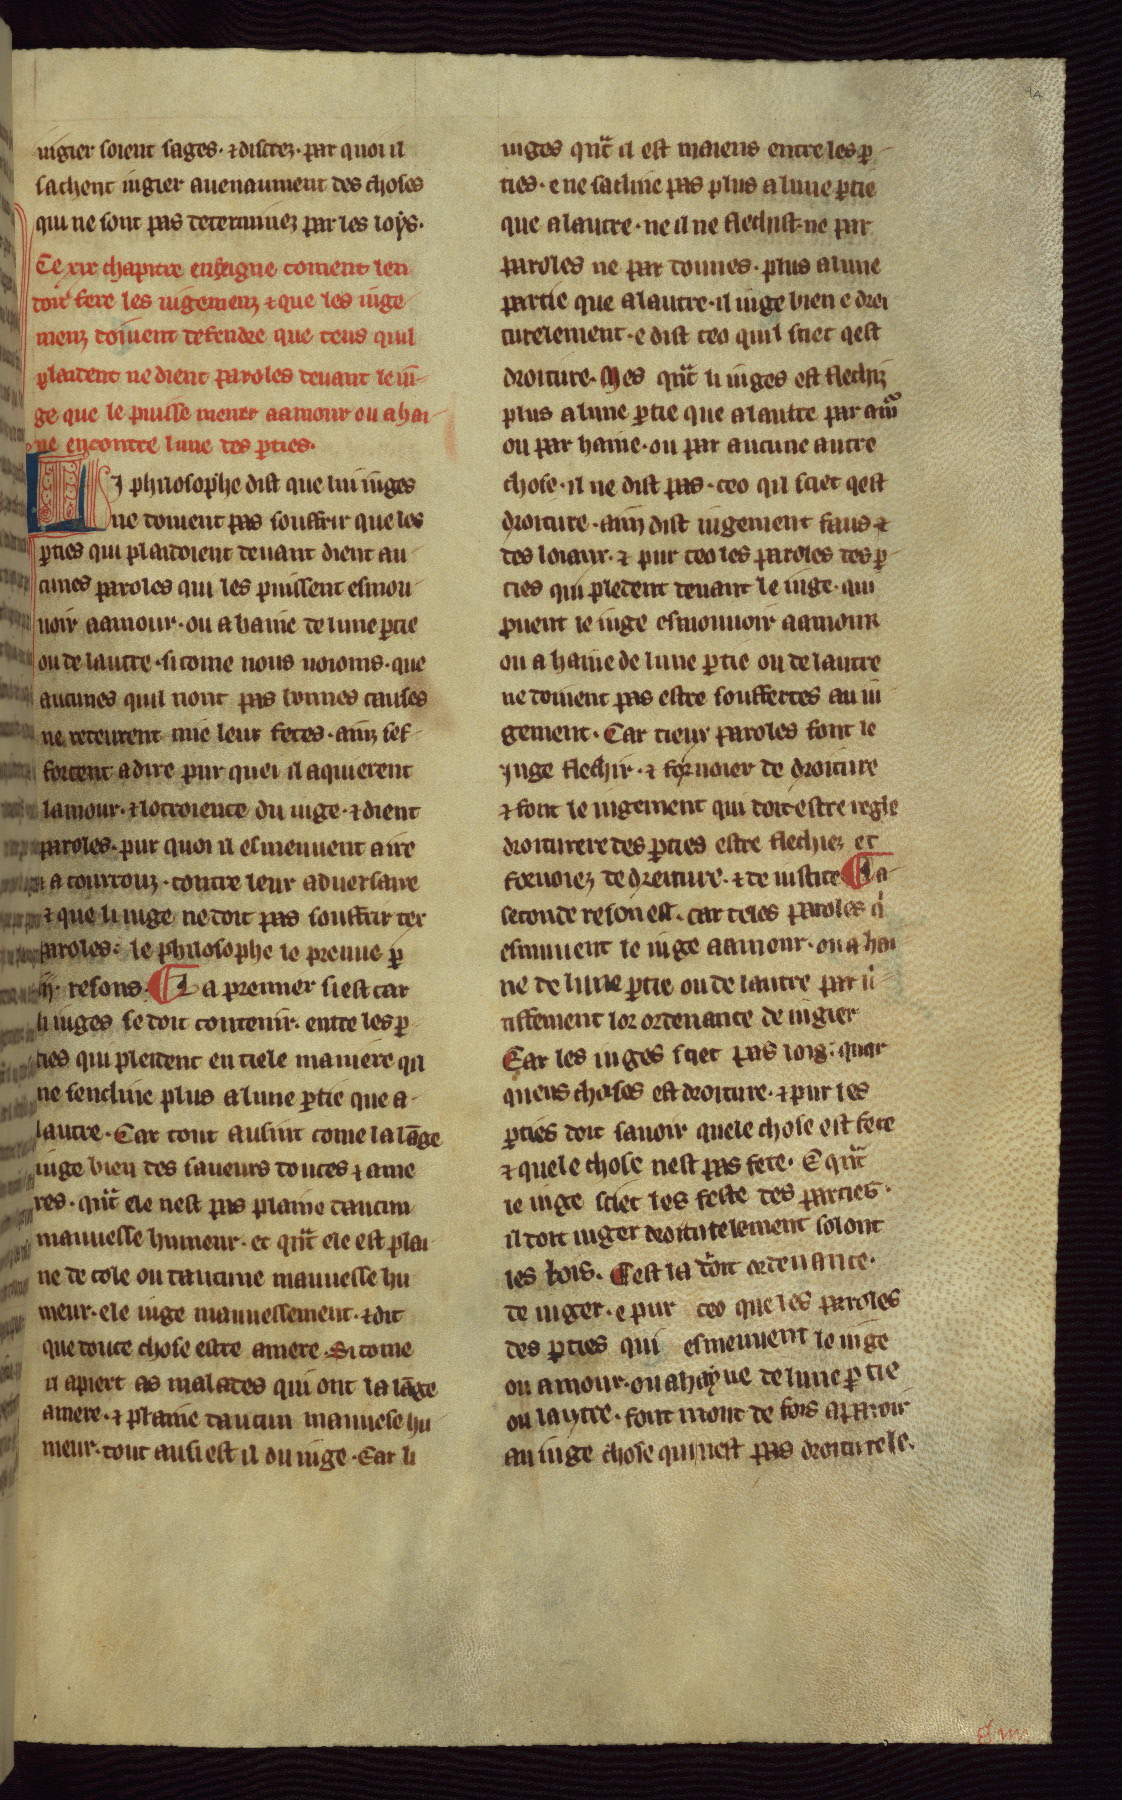 iugier soient sages· ⁊ discrez· par quoi il
sachent iugier auenaument des choses
qui ne sont pas determinez par les loys·
Le xix chapitre enseigne coment len
doit fere les iugemenz ⁊ que les iuge
menz doiuent defendre que ceus quil
plaident ne dient paroles deuant le iu-
ge que le puisse mener a amour ou a hai
ne encontre lune des ꝑties·
LI philosophe dist que lui iuges
ne doiuent pas souffrir que les
ꝑties qui plaidoient deuant dient au-
cunes paroles qui les puissent esmou-
uoir a amour· ou a haine de lune ꝑtie
ou de lautre· si come nous uoioms· que
aucunes quil nont pas bonnes causes
ne receurent mie leur fetes· ainz sef-
forcent a dire pur quei il aquierent
lamour· ⁊ lotroience du iuge· ⁊ dient
paroles· pur quoi il esmeuuent a ire
⁊ a courrouz· contre leur aduersaire
⁊ que li iuge ne doit pas souffrir ter
paroles· le philosophe le preuue ꝑ
ij· resons· La premier si est car
li iuges se doit contenir· entre les ꝑ-
ties qui pleident en tiele maniere qil
ne sencline plus a lune ꝑtie que a-
lautre· Car tout ausint come la lāge
iuge bien des saueurs douces ⁊ ame
res· qn̄t ele nest pas plaine daucun
mauuesse humeur· et qn̄t ele est plai
ne de cole ou daucune mauuesse hu
meur· ele iuge mauuessement· ⁊ dit
que douce chose estre amere· Si come
il apiert as malades qui ont la lāge
amere· ⁊ plaine daucun mauuese hu
meur· tout ausi est il du iuge· Car li
iuges qn̄t il est maiens entre les ꝑ-
ties· e ne sacline pas plus a lune ꝑtie
que a lautre· ne il ne flechist· ne par
paroles ne par dounes· plus a lune
partie que a lautre· il iuge bien e drei
turelement· e dist ceo quil sciet qest
droiture· Mes qn̄t li iuges est flechiz
plus a lune ꝑtie que a lautre par amo
ou par haine· ou par aucune autre
chose· il ne dist pas· ceo qil sciet qest
droiture· ainz dist iugement faus ⁊
des loiaux· ⁊ pur ceo les paroles des ꝑ-
ties qui pledent deuant le iuge· qui
pruent le iuge esmouuoir a amour
ou a haine de lune ꝑtie ou de lautre
ne doiuent pas estre souffertes au iu
gement· Car tieux paroles font le
iuge flechir· ⁊ foruoier de droiture
⁊ font le iugement qui doit estre regle
droiturere des ꝑties estre flechiez et
foruoiez de dreiture· ⁊ de iustice La
seconde reson est· car teles paroles q̄
esmuuent le iuge a amour· ou a hai
ne de lune ꝑtie ou de lautre par u-
tissement lor ordenance de iugier
Car les iuges sciet pas loig· quar
queus choses est droiture· ⁊ pur les
ꝑties doit sauoir quele chose est fete
⁊ quele chose nest pas fete· E qn̄t
le iuge sciet les feste des parties·
il doit iuger droiturelement solont
les lois· Cest la doit ordenance·
de iuger· e pur ceo que les paroles
des ꝑties qui esmeuuent le iuge
ou amour· ou a hayne de lune ꝑtie
ou lautre· font mont de fois aparoir
au iuge chose qui nest pas droiturele·